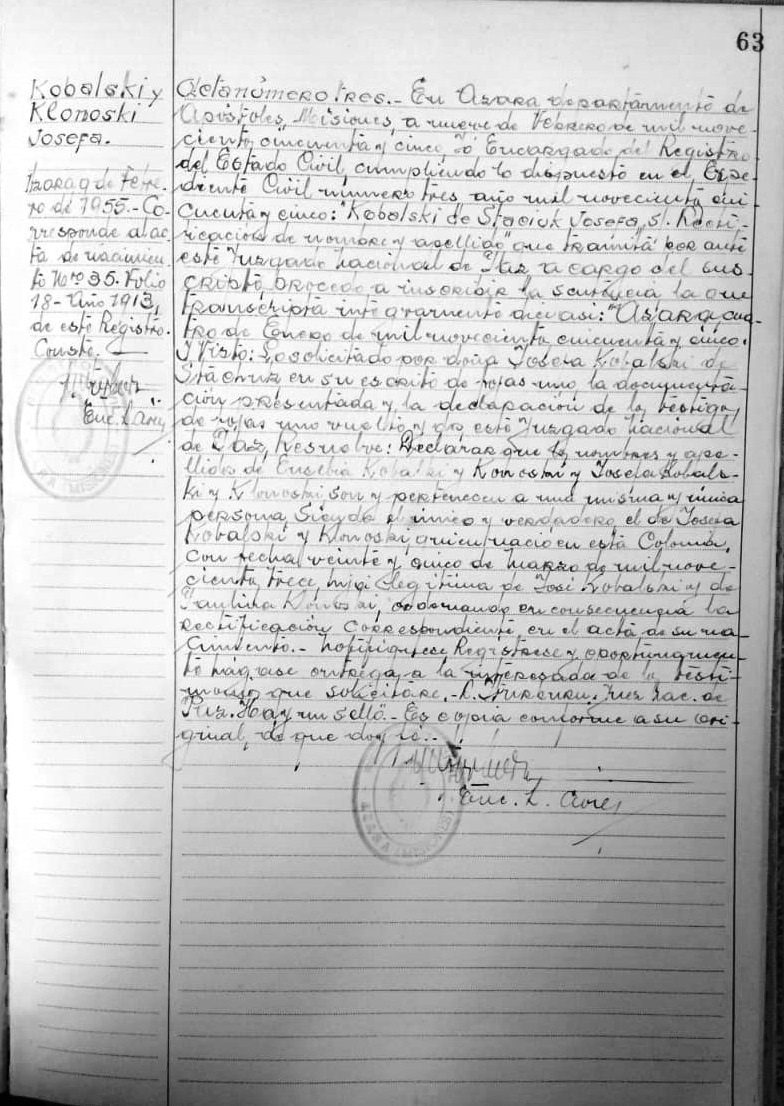 63
Kobalski y
Klonoski
Josefa.
Azara 9 de Febre-
ro de 1955.- Co-
rresponde al ac-
ta de nacimien-
to Nro 35. Folio
18- Año 1913,
de este Registro.
Conste.
Enc.
Acta número tres.- En Azara departamento de
Apóstoles, Misiones, a nueve de Febrero de mil nove-
ciento cincuenta y cinco, Yo Encargado del Registro
del Estado Civil, cumpliendo lo dispuesto en el Expe-
diente Civil número tres año mil noveciento cin-
cuenta y cinco: "Kobalski de Staciuk Josefa, s/. Recti-
ficación de nombre y apellido" que tramita por ante
este Juzgado Nacional de Paz a cargo del sus-
cripto, procedo a inscribir la sentencia la que
transcripta integramente dice así: "Azara cua-
tro de Enero de mil noveciento cincuenta y cinco.
Y Visto: Lo solicitado por doña Josefa Kobalski de
en su escrito de fojas uno la documenta-
ción presentada y la declaración de los testigos
de fojas uno vuelto y dos este Juzgado Nacional
de Paz, Resuelve: Declarar que los nombres y ape-
llidos de Eusebia Kobalski y Konoski y Josefa Kobals-
ki y Klonoski son y pertenecen a una misma y única
persona, Siendo el único y verdadero, el de Josefa
Kobalski y Klonoski, quien nació en esta Colonia,
con fecha veinte y cinco de Marzo de mil nove-
ciento trece, hija legitima de José Kobalski y de
Paulina Klonoski, ordenando en consecuencia la
Rectificación correspondiente en el acta de su na-
cimiento.- Notifiquese Registrese y oportunamen-
te hágase entrega a la interesada de los testi-
monios que solicitare.- Juez Nac. de
Paz. Hay un sello.- Es copia conforme a su ori-
ginal, de que doy fé.-
Enc.
AZARA (MISIONES)